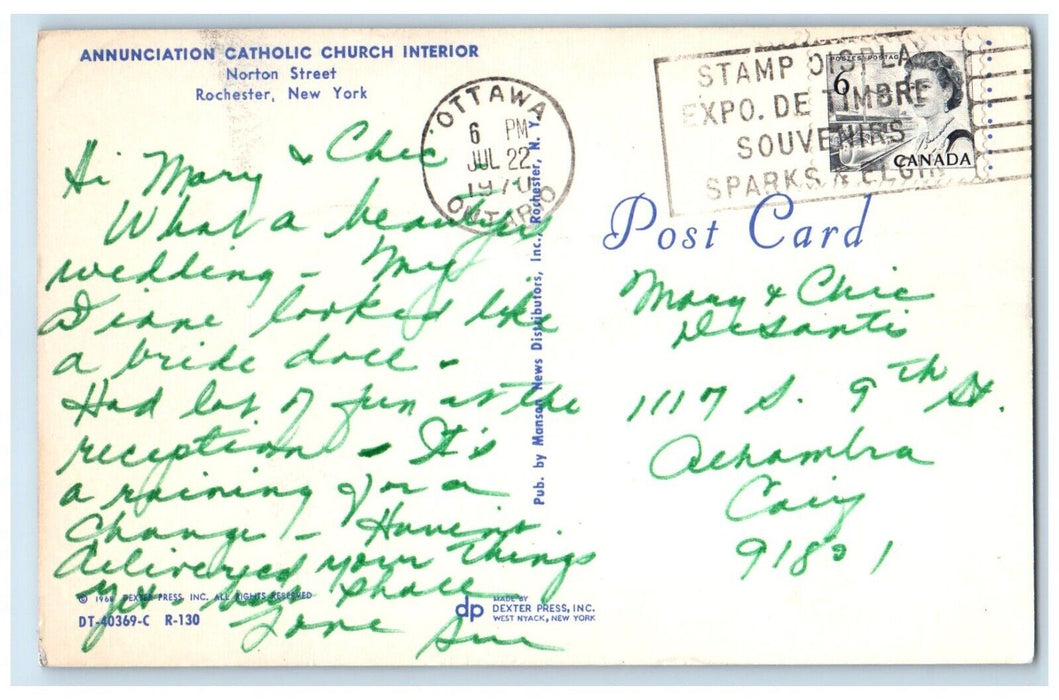 ANNUNCIATION CATHOLIC CHURCH INTERIOR
Norton Street
Rochester, New York
OTTAWA
6 PM
JUL 22
1970
ONTARIO
STAMP DISPLA
EXPO. DE TIMBRE
SOUVENIRS
SPARKS & ELGIN
POSTES POSTAGE
6
CANADA
Post Card
Hi Mary & Chic
What a beautiful
wedding - My
Diane looked like
a bride doll -
Had lot of fun at the
reception - It's
a raining for a
change - Havent
delivered your things
yet - but shall
Love Sue
Mary & Chic
DeSantis
1117 S. 9th St.
Alhambra
91801
Pub. by Manson News Distributors, Inc., Rochester, N. Y.
© 1968 DEXTER PRESS, INC. ALL RIGHTS RESERVED
DT-40369-C R-130
dp
MADE BY
DEXTER PRESS, INC.
WEST NYACK, NEW YORK